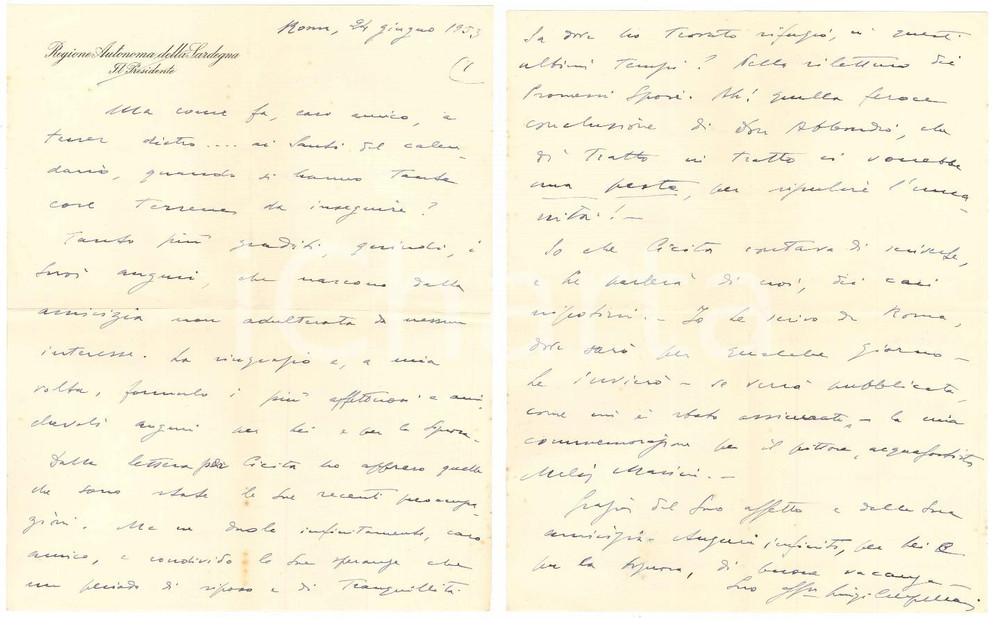 Roma, 24 giugno 1953
Regione Autonoma della Sardegna
Il Presidente
(1
Ma come fa, caro amico, a
tener dietro.... ai Santi del calen-
dario, quando si hanno tante
cose terrene da inseguire?
Tanto più graditi, quindi, i
Suoi auguri, che nascono dalla
amicizia non adulterata da nessun
interesse. La ringrazio e, a mia
volta, formulo i più affettuosi e ami-
chevoli auguri per Lei e per la Signora.
Dalla lettera per Cicita ho appreso quelle
che sono state le Sue recenti preoccupa-
zioni. Me ne duole infinitamente, caro
amico, e condivido le Sue speranze che
un periodo di riposo e di tranquillità
Sa dove ho trovato rifugio, in questi
ultimi tempi? Nella rilettura dei
Promessi Sposi. Ah! quella feroce
conclusione di Don Abbondio, che
di tratto in tratto ci vorrebbe
una peste, per ripulire l'uma-
nità! -
So che Cicita contava di scriverle,
e Le parlerà di noi, dei cari
nipotini. - Io Le scrivo da Roma,
dove sarò per qualche giorno -
Le invierò - se verrà pubblicata,
come mi è stato assicurato, - la mia
commemorazione per il pittore, acquafortista
Melis Marini. -
Grazie del Suo affetto e della Sua
amicizia. Auguri infiniti, per Lei e
per la Signora, di buone vacanze -
Suo aff.mo Luigi Crespellani
iCharta